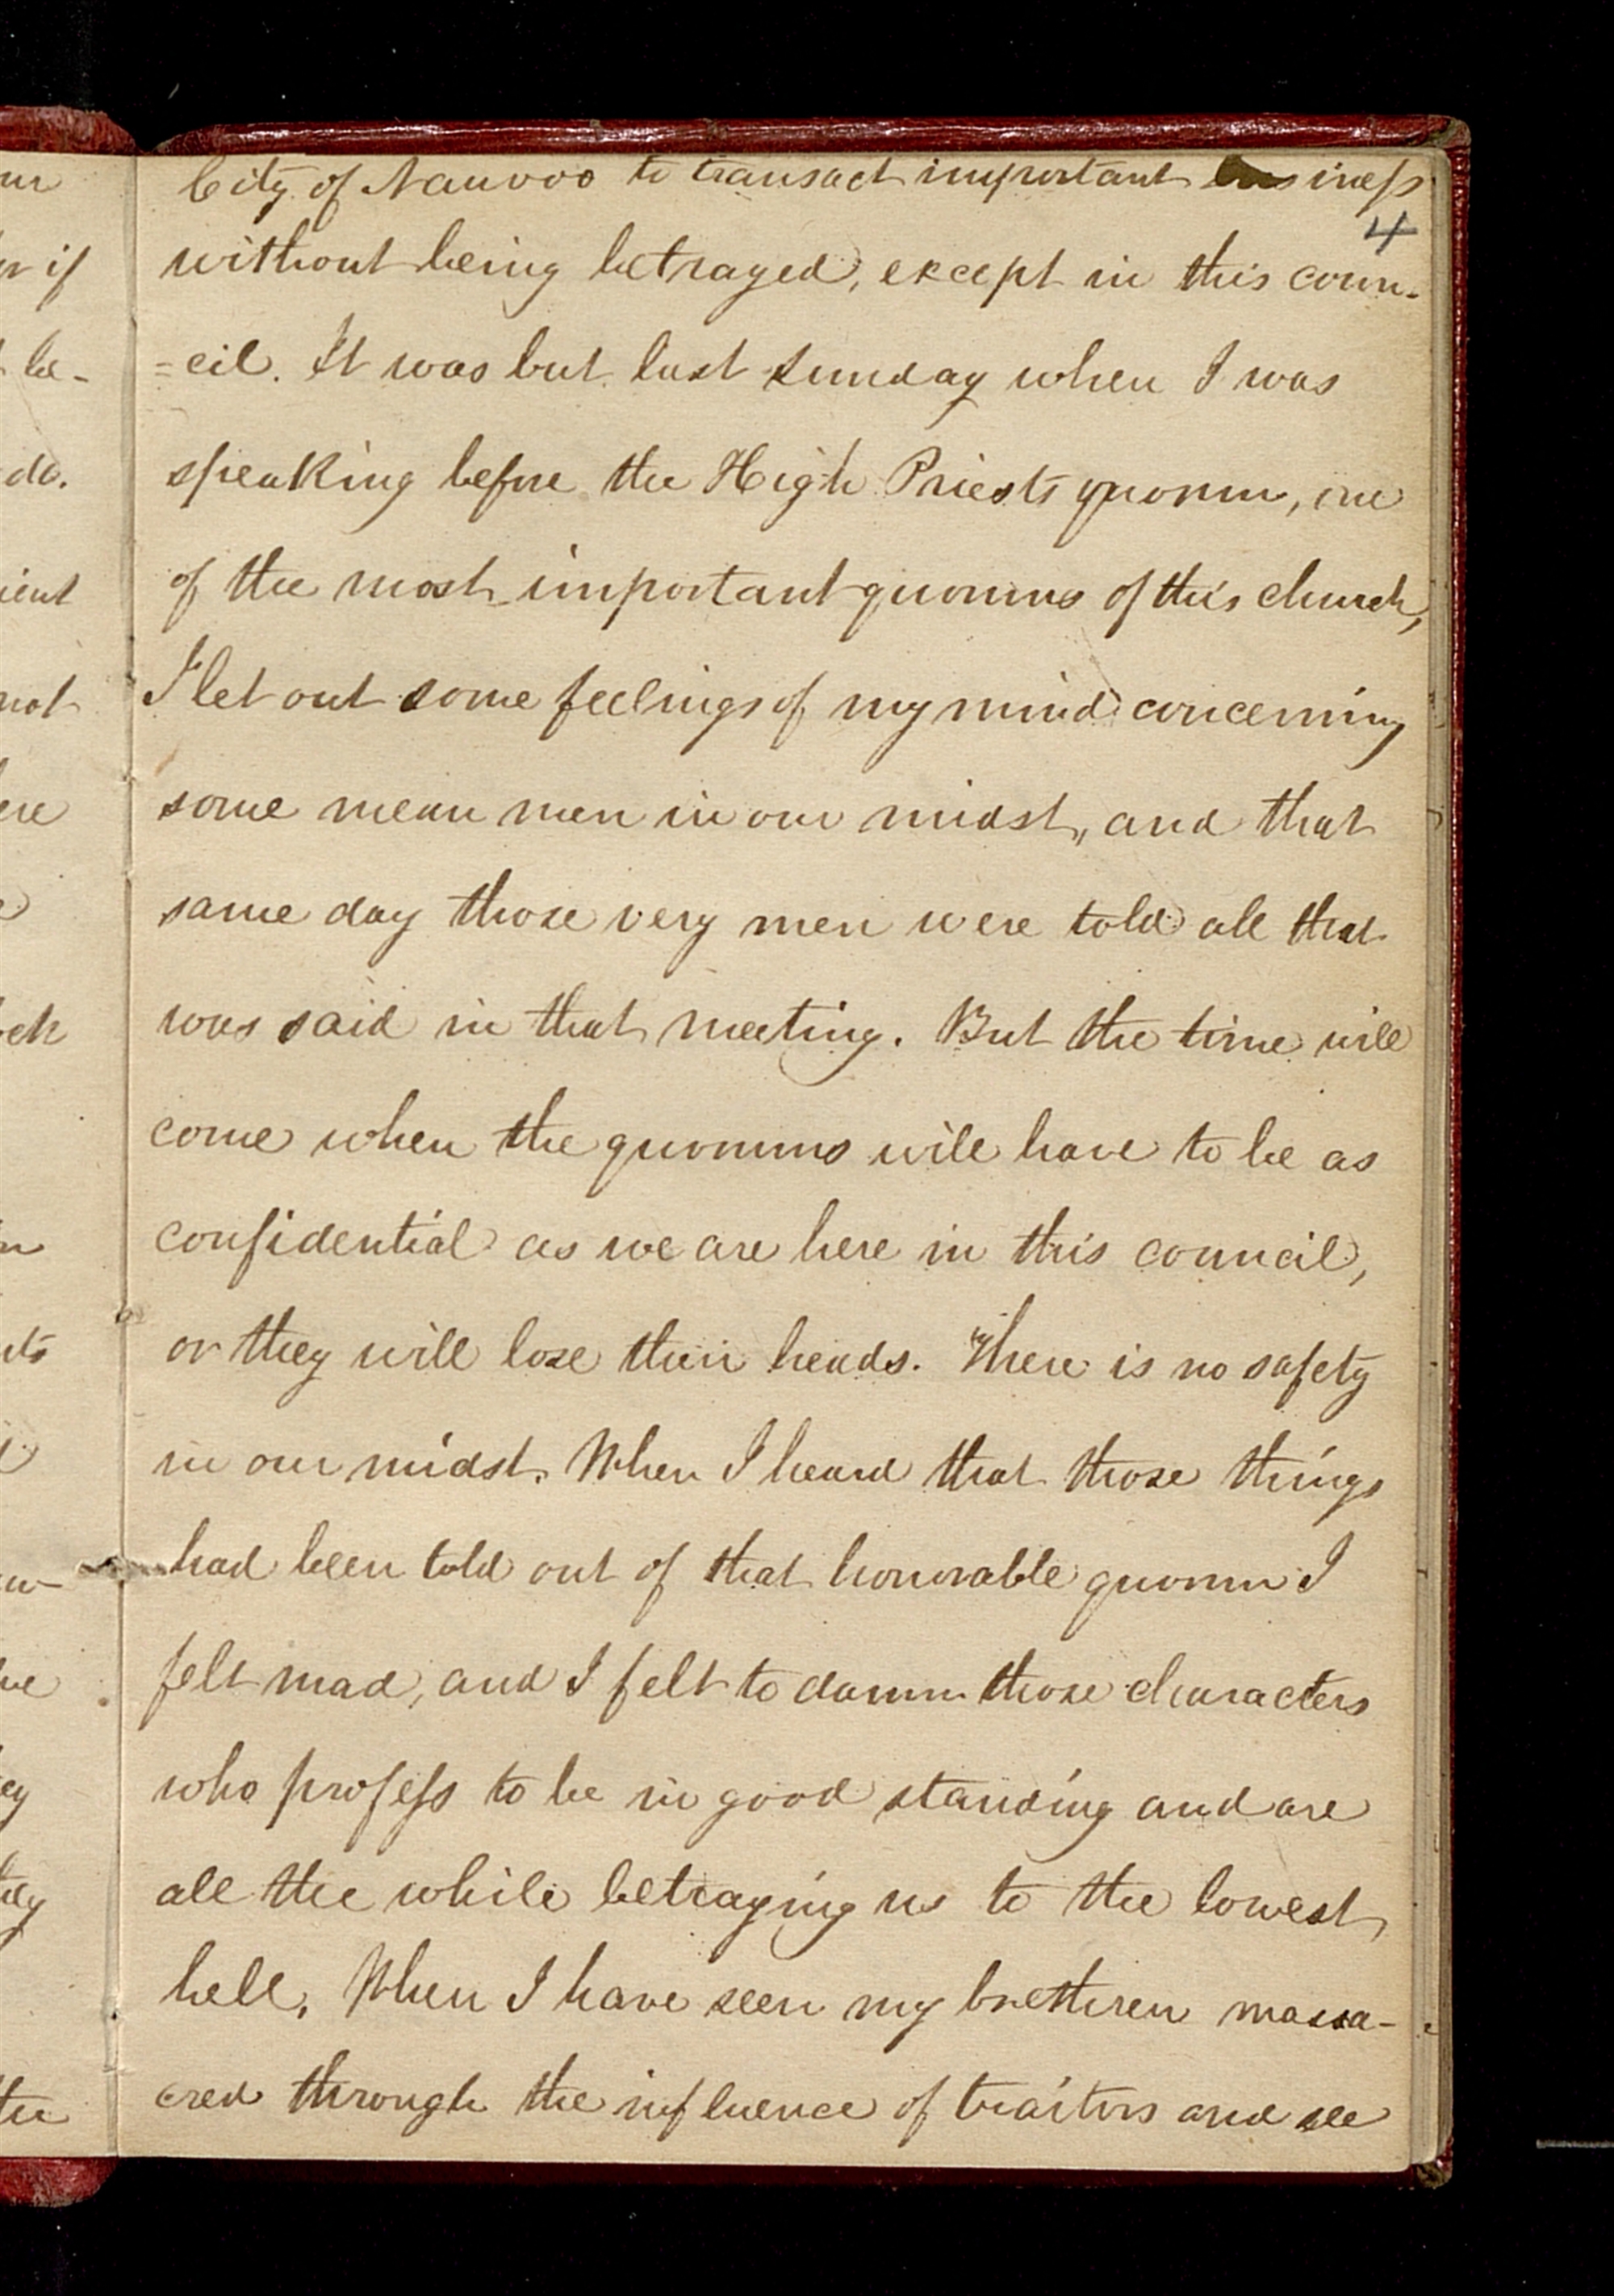 City of Nauvoo to transact important business
4
without being betrayed, except in this coun-
=cil. It was but last Sunday when I was
speaking before the High Priests quorum, one
of the most important quorums of this church,
I let out some feelings of my mind concerning
some mean men in our midst, and that
same day those very men were told all that
was said in that meeting. But the time will
come when the quorums will have to be as
confidential as we are here in this council,
or they will lose their heads. There is no safety
in our midst. When I heard that those things
had been told out of that honorable quorum I
felt mad, and I felt to damn those characters
who profess to be in good standing and are
all the while betraying us to the lowest
hell. When I have seen my brethren massa-
cred through the influence of traitors and see